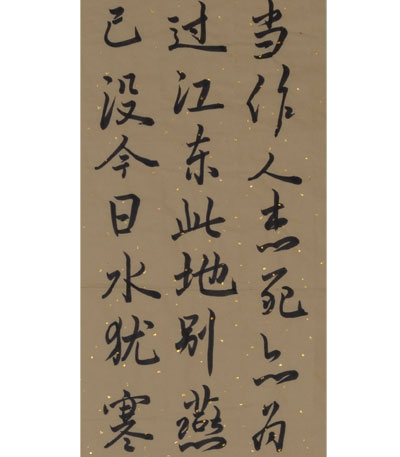 当作人杰死亦为
过江东此地别燕
已没今日水犹寒